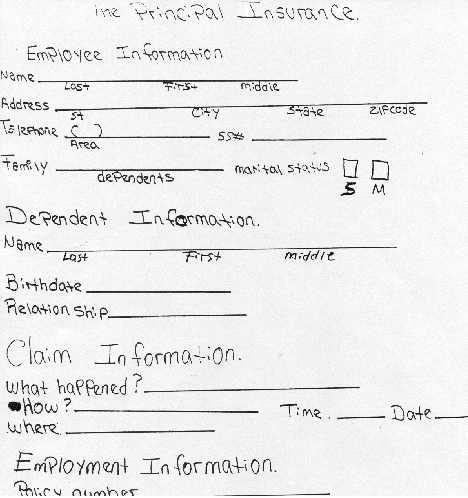 The Principal Insurance.
Employee Information
Name
Last First middle
Address
St City State zipcode
Telephone ( ) SS#
Area
Family marital status
dependents S M
Dependent Information.
Name
Last First middle
Birthdate
Relationship
Claim Information.
what happened?
How? Time. Date
where
Employment Information.
Policy number